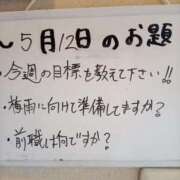 〜5月12日のお題
・今週の目標も教えて下さい!!
・梅雨に向けて準備してますか?
・前職は何ですか?